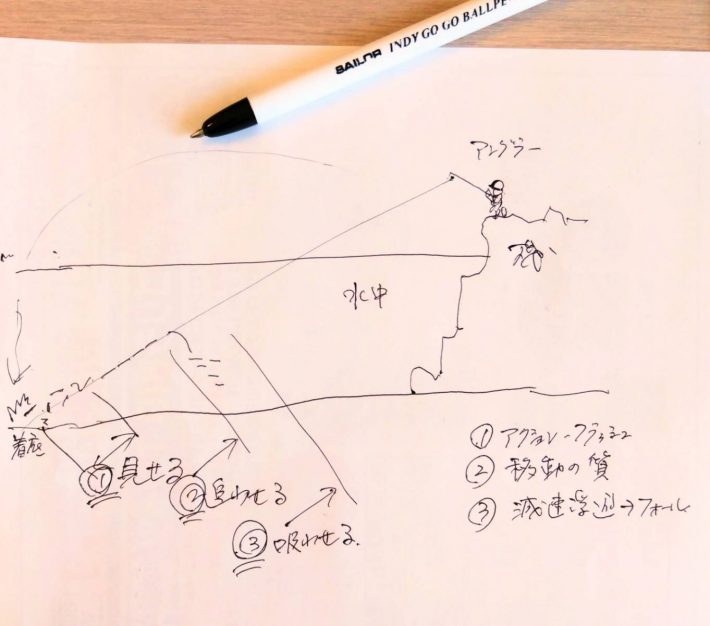 SAILOR INDY GO GO BALLPE
アングラー
磯
水中
着底
① 見せる
② 追わせる
③ 吸わせる
① アクション-フラッシュ
② 移動の質
③ 減速浮遊→フォール